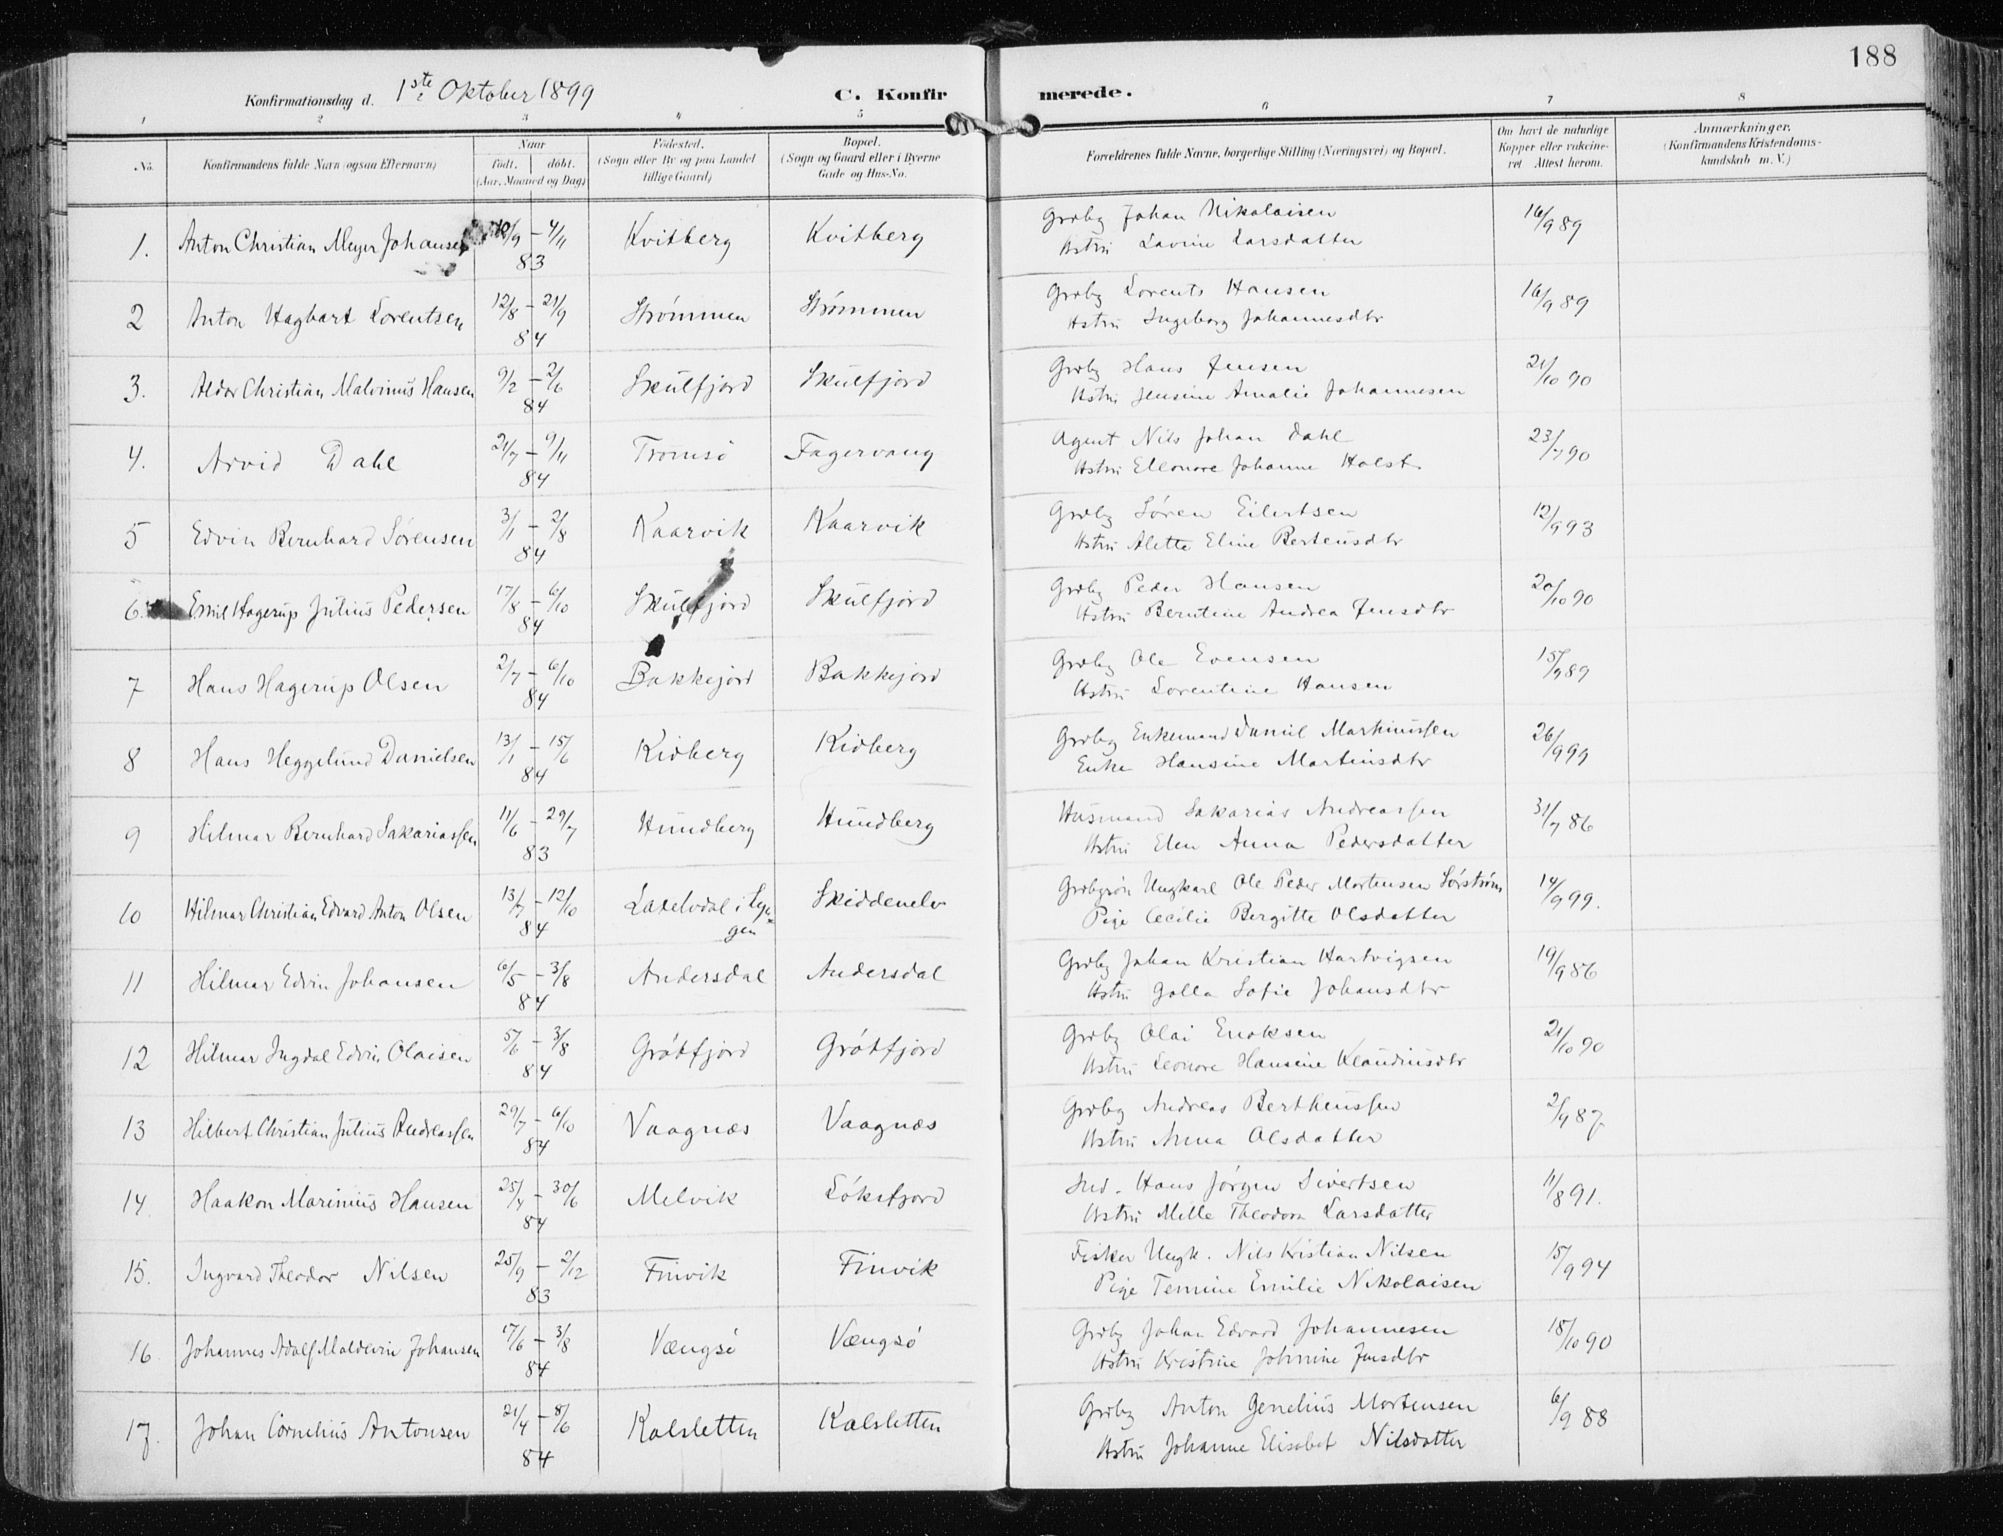 188
Konfirmationsdag d. 1ste Oktober 1899
C. Konfirmerede.
1 2 3 4 5 6 7 8
No.
Konfirmandens fulde Navn (ogsaa Efternavn)
Naar
født. døbt.
(Aar, Maaned og Dag)
Fødested.
(Sogn eller By og paa Landet
tillige Gaard)
Bopæl.
(Sogn og Gaard eller i Byerne
Gade og Hus-No.
Forældrenes fulde Navne, borgerlige Stilling (Næringsvei) og Bopæl.
Om havt de naturlige
Kopper eller vakcine-
ret. Attest herom.
Anmærkninger.
(Konfirmandens Kristendoms-
kundskab m. V.)
1. Anton Christian Meyer Johansen /9 – 4/11 83 Kvitberg Kvitberg Grdbg Johan Nikolaisen 16/9 89
Hstru Lavine Larsdatter
2 Anton Hagbart Lorentsen 12/8 – 21/9 84 Strømmen Strømmen Grdbg Lorents Hansen 16/9 89
Hstru Ingeborg Johannesdtr
3. Aldor Christian Malvinus Hansen 9/2 – 2/6 84 Skulfjord Skulfjord Grdbg Hans Jensen 21/10 90
Hstru Jensine Amalie Johannesen
4. Arvid Dahl 21/7 – 9/11 84 Tromsø Fagervang Agent Nils Johan Dahl 23/7 90
Hstru Elleonore Johanne Holst.
5 Edvin Bernhard Sørensen 3/1 – 2/8 84 Kaarvik Kaarvik Grdbg Søren Eilertsen 12/9 93
Hstru Alette Eline Berteusdtr
6. Emil Hagerup Julius Pedersen 17/8 – 6/10 84 Skulfjord Skulfjord Grdbg Peder Hansen 20/10 90
Hstru Berntine Andrea Jensdtr
7 Hans Hagerup Olsen 2/7 – 6/10 84 Bakkejord Bakkejord Grdbg Ole Evensen 15/9 89
Hstru Lorentine Hansen
8 Hans Heggelund Danielsen 13/1 – 15/6 84 Kidberg Kidberg Grdbg Enkemand Daniel Martinussen 26/9 99
Enke Hansine Martinsdtr
9 Hilmar Bernhard Sakariassen 11/6 – 29/7 83 Hundberg Hundberg Husmand Sakarias Andreassen 31/7 86
Hstru Elen Anna Pedersdatter
10 Hilmar Christian Edvard Anton Olsen 13/7 – 12/10 84 Lakselvdal i Lyn- Skiddenelv Grdbgsøn Ungkarl Ole Peder Mortensen Sørstrøm 14/9 99.
gen Pige Cecilie Bergitte Olsdatter
11 Hilmar Edvin Johansen 6/5 – 3/8 84 Andersdal Andersdal Grdbg Johan Kristian Hartvigsen 19/9 86
Hstru Golla Sofie Johansdtr
12 Hilmar Ingdal Edvin Olaisen 5/6 – 3/8 84 Grøtfjord Grøtfjord Grdbg Olai Enoksen 21/10 90
Hstru Leonore Hansine Klaudiusdtr
13 Hilbert Christian Julius Andreassen 29/7 – 6/10 84 Vaagnæs Vaagnæs Grdbg Andreas Bertheussen 2/9 87
Hstru Anna Olsdatter
14. Haakon Marinius Hansen 25/4 – 30/6 84 Melvik Løksfjord Ind. Hans Jørgen Sivertsen 11/8 91.
Hstru Mille Theodora Larsdatter
15. Ingvard Theodor Nilsen 25/9 – 2/12 83 Finvik Finvik Fisker Ungk. Nils Kristian Nilsen 15/9 94
Pige Temine Emilie Nikolaisen
16 Johannes Adolf Maldevin Johansen 17/6 – 3/8 84 Vængsø Vængsø Grdbg Johan Edvard Johannesen 18/10 90
Hstru Kristine Johnine Jensdtr
17. Johan Cornelius Antonsen 21/4 – 8/6 84 Kalsletten Kalsletten Grdbg Anton Genelius Mortensen 6/9 88
Hstru Johanne Elisabet Nilsdatter